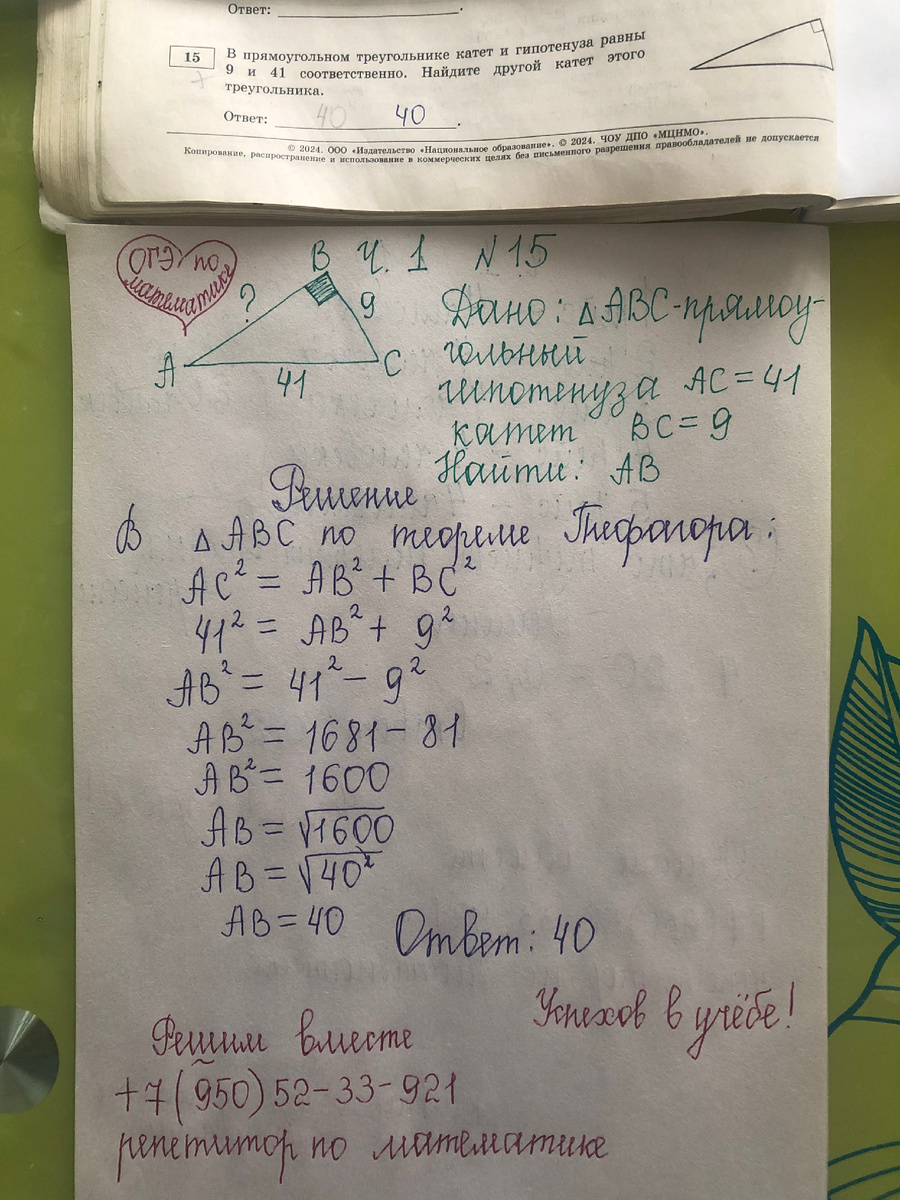 Ответ: ____________.
15 В прямоугольном треугольнике катет и гипотенуза равны
9 и 41 соответственно. Найдите другой катет этого
треугольника.
Ответ: 40 40 .
© 2024. ООО «Издательство «Национальное образование». © 2024. ЧОУ ДПО «МЦНМО».
Копирование, распространение и использование в коммерческих целях без письменного разрешения правообладателей не допускается
ОГЭ по
математике
Ч. 1 N 15
B
?
9
A
C
41
Дано: △ABC-прямоу-
гольный
гипотенуза AC = 41
катет BC = 9
Найти: AB
Решение
В △ABC по теореме Пифагора:
AC² = AB² + BC²
41² = AB² + 9²
AB² = 41² - 9²
AB² = 1681 - 81
AB² = 1600
AB = √1600
AB = √40²
AB = 40 Ответ: 40
Успехов в учёбе!
Решим вместе
+7(950)52-33-921
репетитор по математике